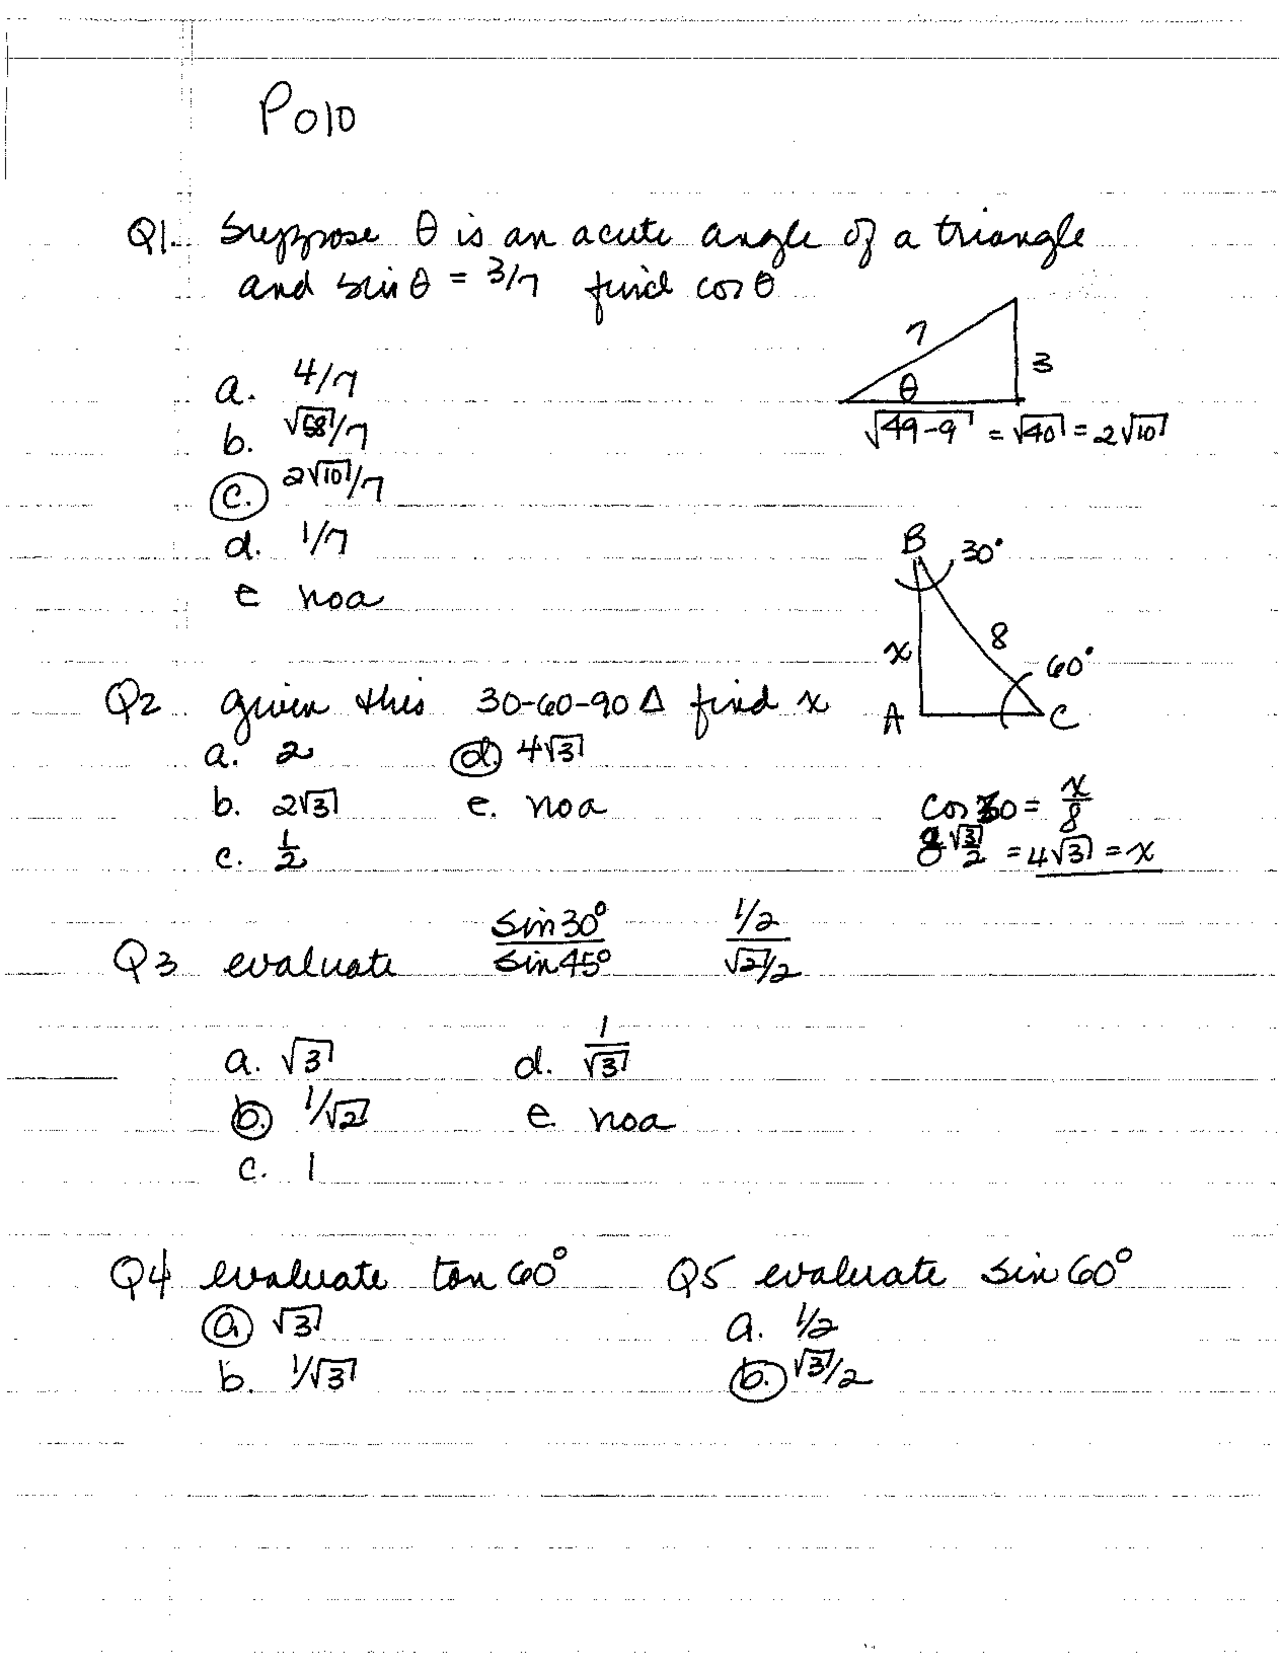 P010
Q1. Suppose θ is an acute angle of a triangle
and sin θ = 3/7 find cos θ
7
3
θ
√49-9 = √40 = 2√10
a. 4/7
b. √58/7
c. 2√10/7
d. 1/7
e noa
B 30°
x 8 60°
A C
Q2 given this 30-60-90 Δ find x
a. 2 d. 4√3
b. 2√3 e. noa
c. 1/2
cos 30 = x/8
8 √3/2 = 4√3 = x
Q3 evaluate sin 30°/sin 45° 1/2/√2/2
a. √3 d. 1/√3
b. 1/√2 e. noa
c. 1
Q4 evaluate tan 60° Q5 evaluate sin 60°
a √3 a. 1/2
b. 1/√3 b. √3/2